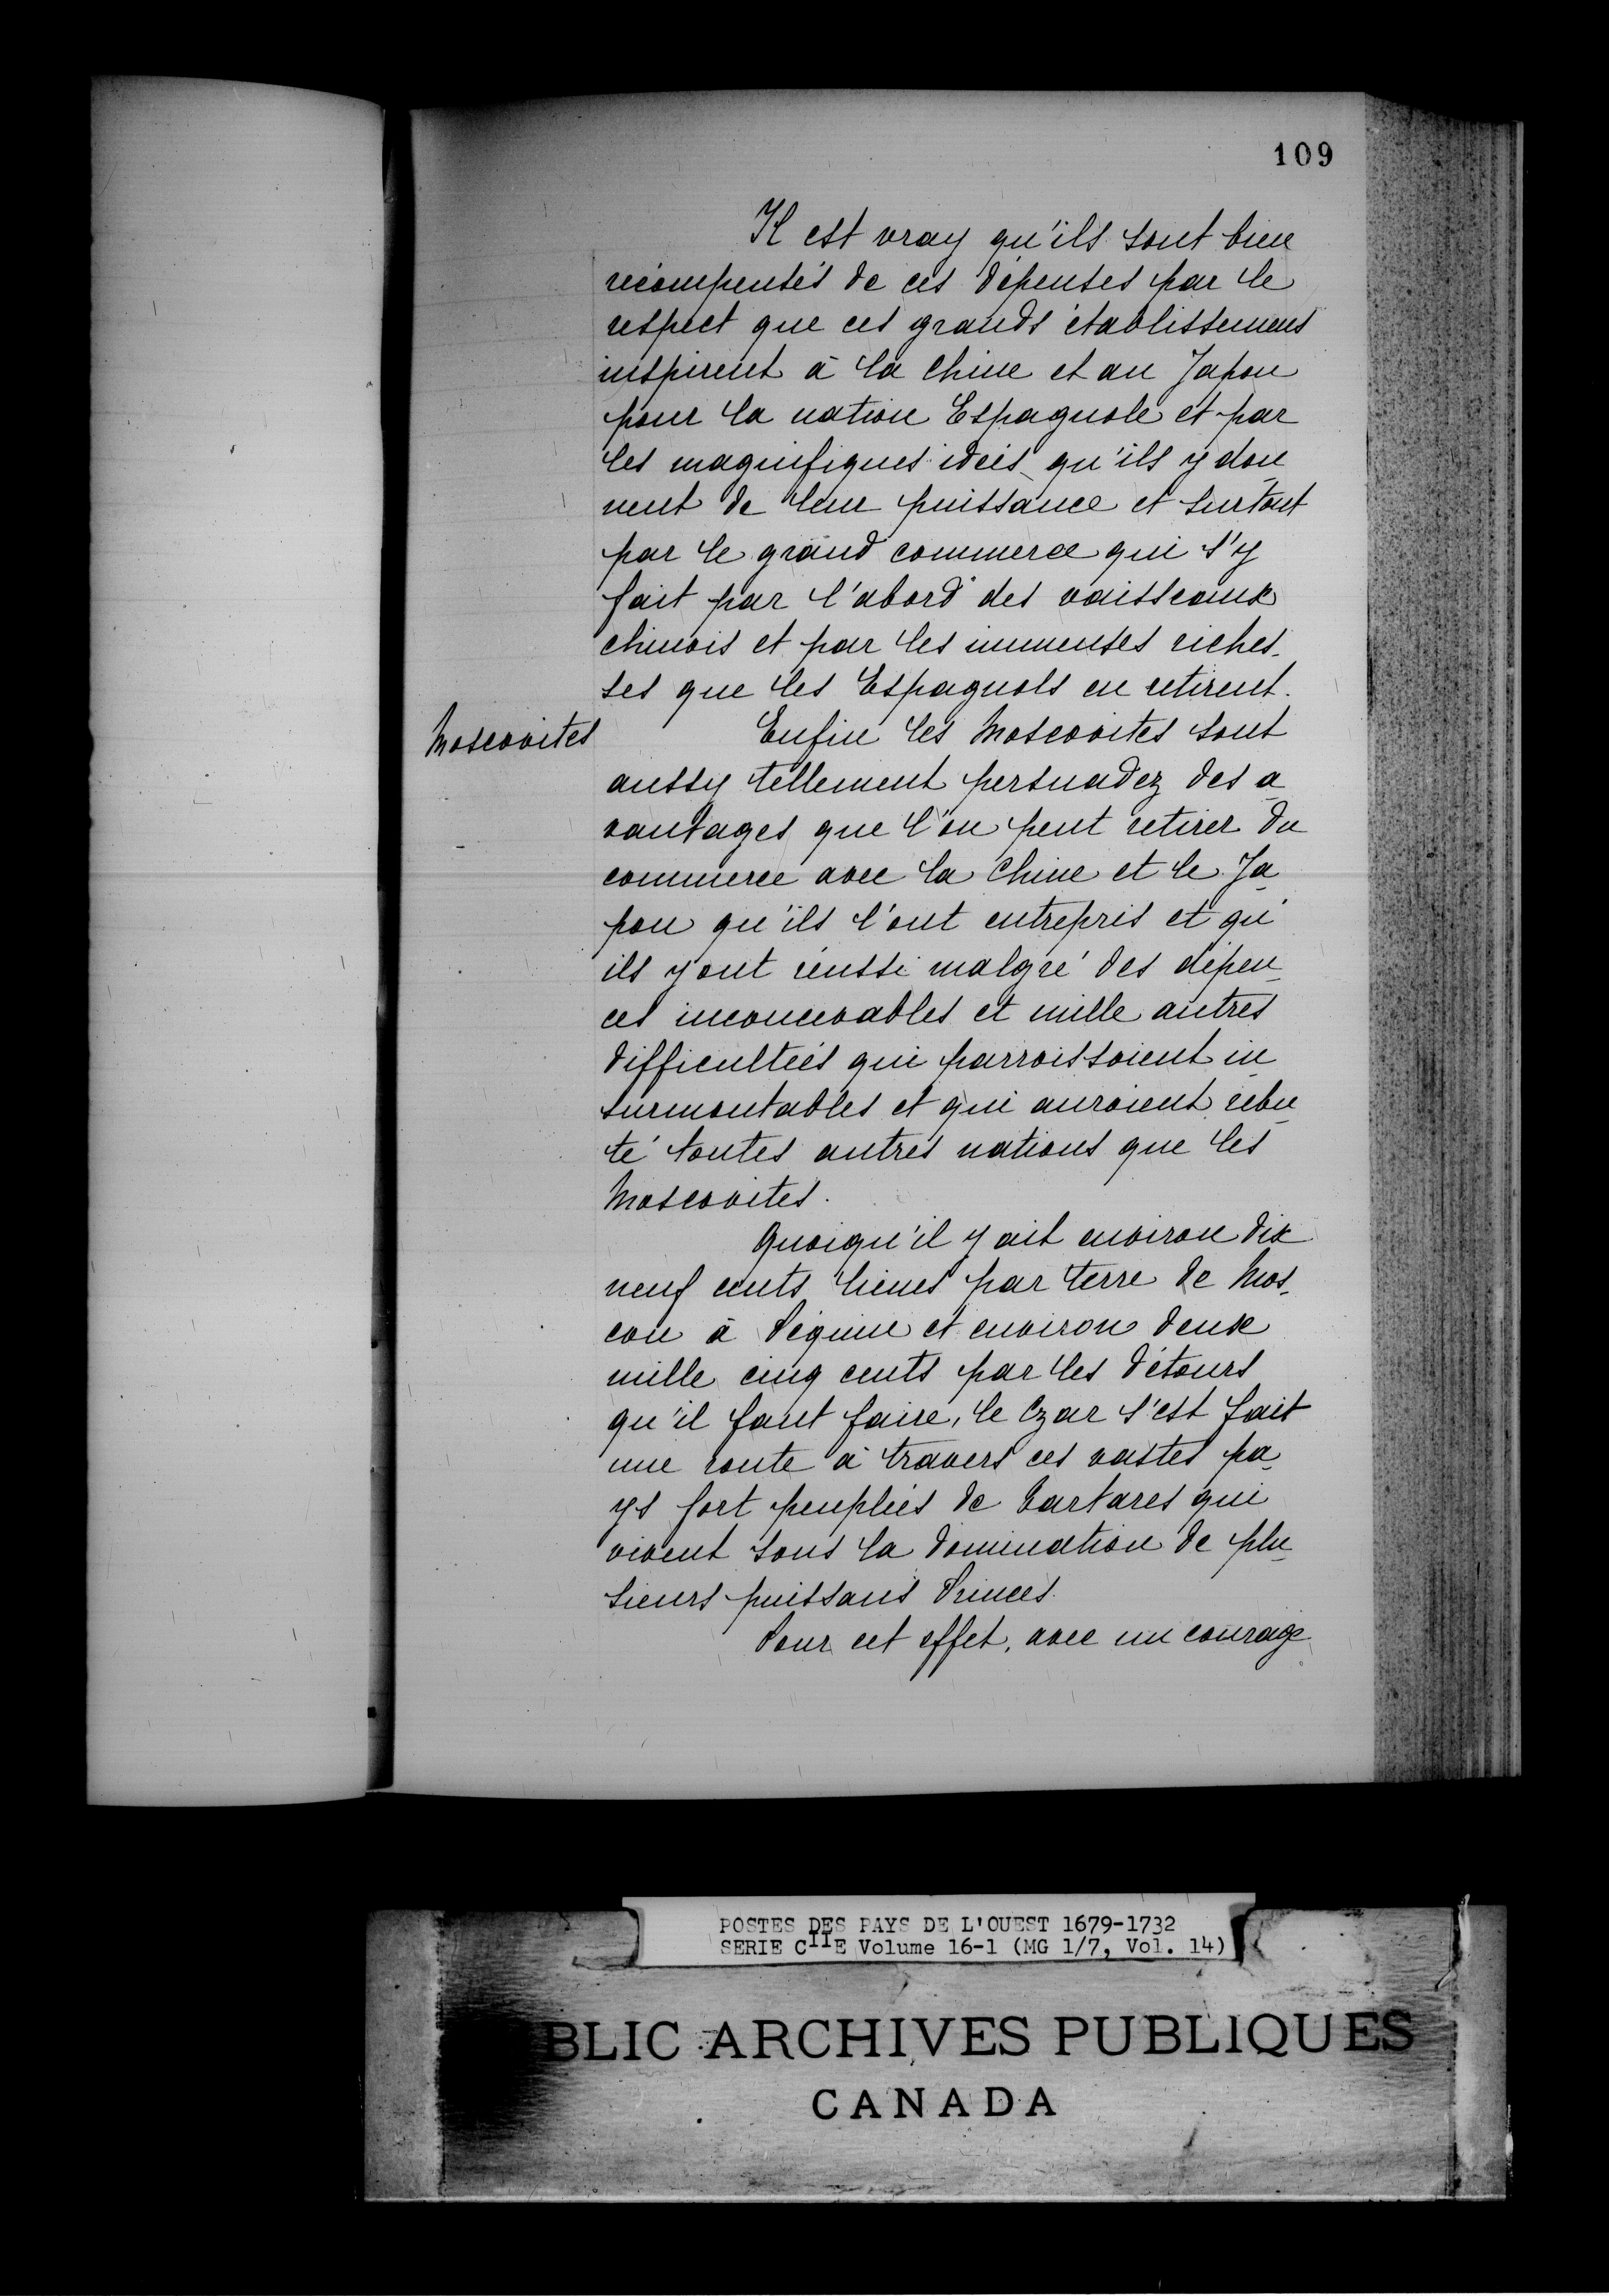 109
Il est vray qu'ils sont bien
récompensés de ces dépenses par le
respect que ces grands établissemens
inspirent à la Chine et au Japon
pour la nation Espagnole et par
les magnifiques idées qu'ils y don
nent de leur puissance et surtout
par le grand commerce qui s'y
fait par l'abord des vaisseaux
chinois et par les immenses riches-
ses que les Espagnols en retirent.
Moscovites
Enfin les Moscovites sont
aussy tellement persuadez des a
vantages que l'on peut retirer du
commerce avec la Chine et le Ja
pon qu'ils l'ont entrepris et qu'
ils y ont réussi malgré des dépen
ces inconcevables et mille autres
difficultées qui parroissoient in
surmontables et qui auroient rebu
té toutes autres nations que les
Moscovites.
Quoiqu'il y ait environ dix
neuf cents lieues par terre de Mos-
cou à Péquin et environ deux
mille cinq cents par les détours
qu'il faut faire, le Czar s'est fait
une route à travers ces vastes pa
ys fort peuplées de Tartares qui
vivent sous la domination de plu
sieurs puissans Princes.
Pour cet effet, avec un courage
POSTES DES PAYS DE L'OUEST 1679-1732
SERIE CIIE Volume 16-1 (MG 1/7, Vol. 14)
BLIC ARCHIVES PUBLIQUES
CANADA